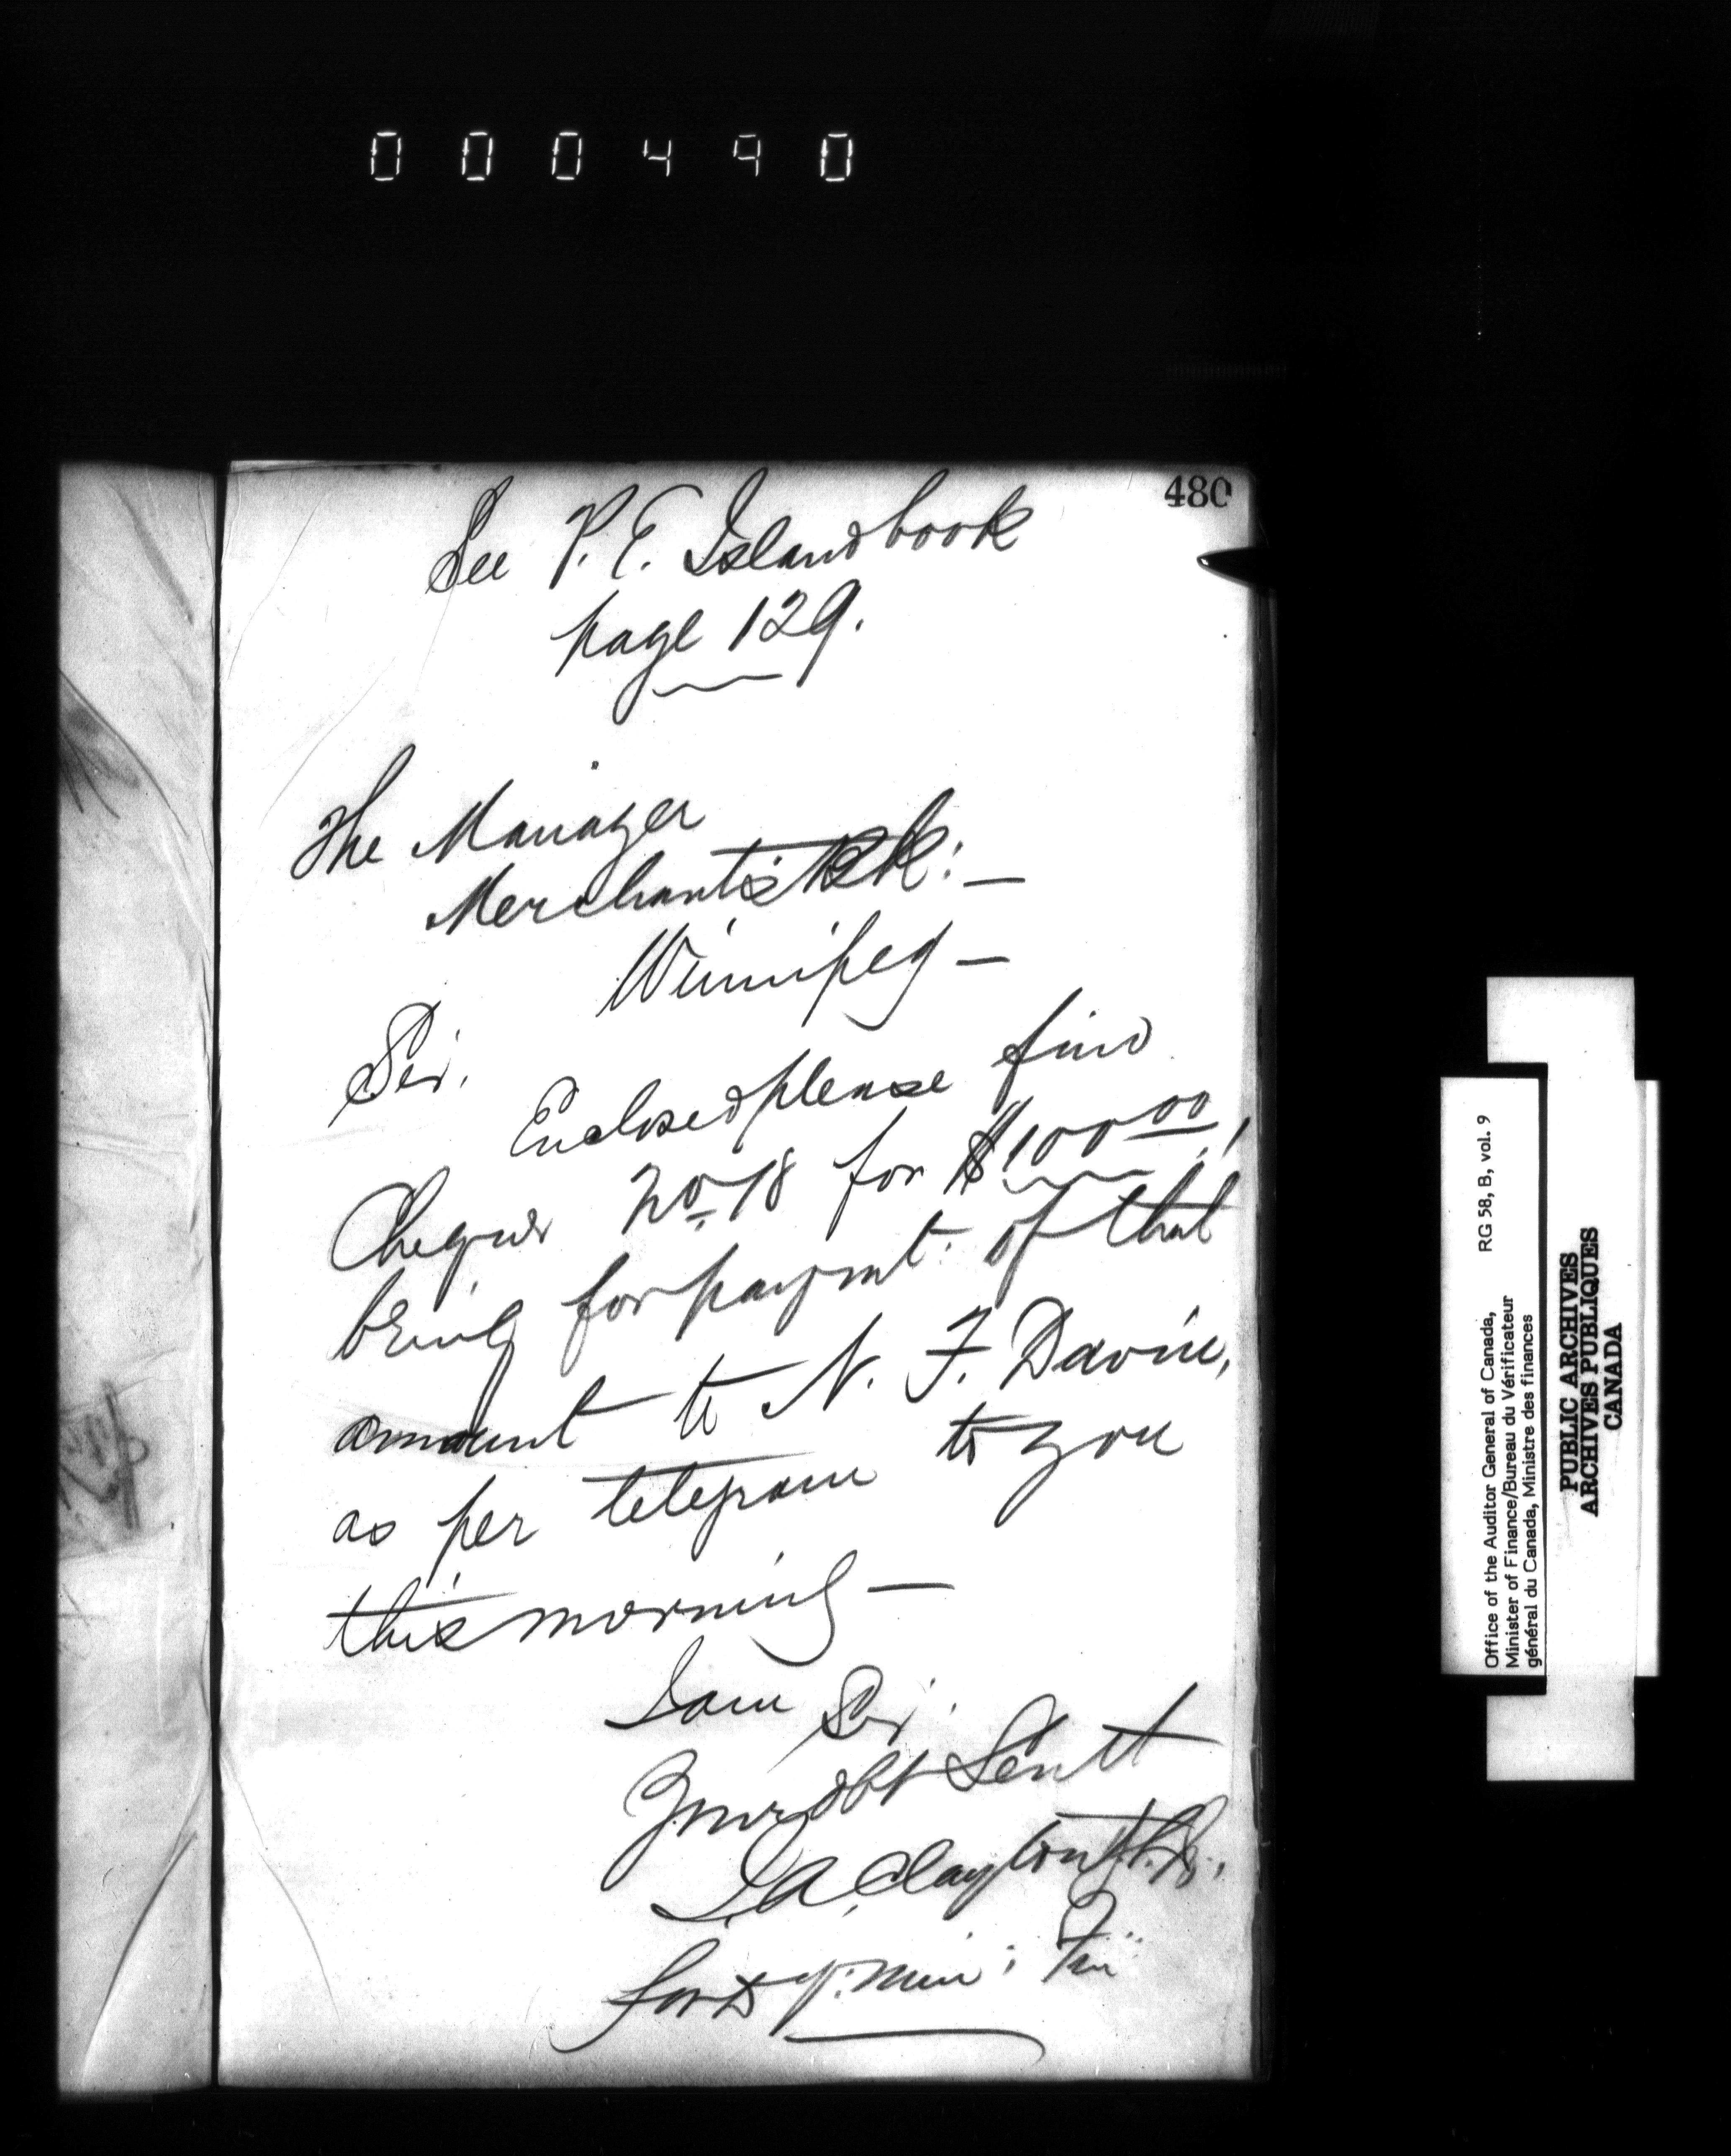 000490
480
See P. E. Island book
page 129.
The Manager
Merchants Bk:—
Winnipeg—
Sir,
Enclosed please find
Cheque No 18 for $100 00,
being for paymt: of that
amount to N. F. Davin,
as per telegram to you
this morning—
I am Sir
Your obt Servt
J. A. Clayton
for Dy: Min: Fin:
RG 58, B, vol. 9
Office of the Auditor General of Canada,
Minister of Finance/Bureau du Vérificateur
général du Canada, Ministre des finances
PUBLIC ARCHIVES
ARCHIVES PUBLIQUES
CANADA